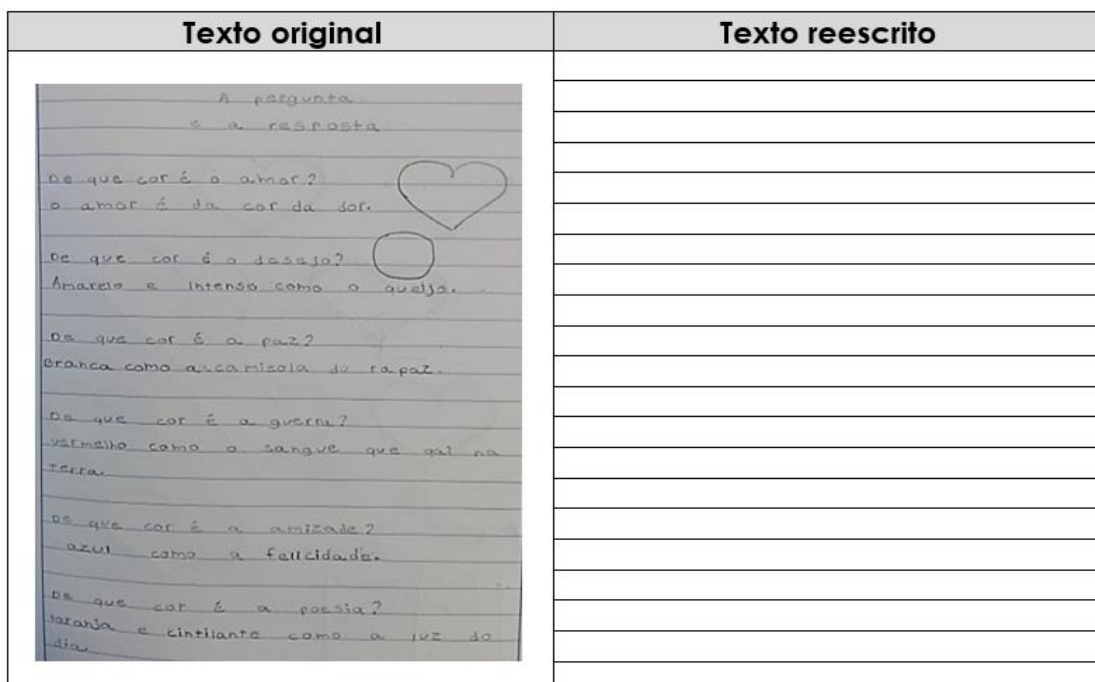 Texto original
Texto reescrito
A pergunta
e a resposta
De que cor é o amor?
o amor é da cor da dor.
De que cor é o desejo?
Amarelo e intenso como o queijo.
De que cor é a paz?
Branca como a camisola do rapaz.
De que cor é a guerra?
vermelho como o sangue que qai na
terra.
De que cor é a amizade?
azul como a felicidade.
De que cor é a poesia?
laranja e cintilante como a luz do
dia.